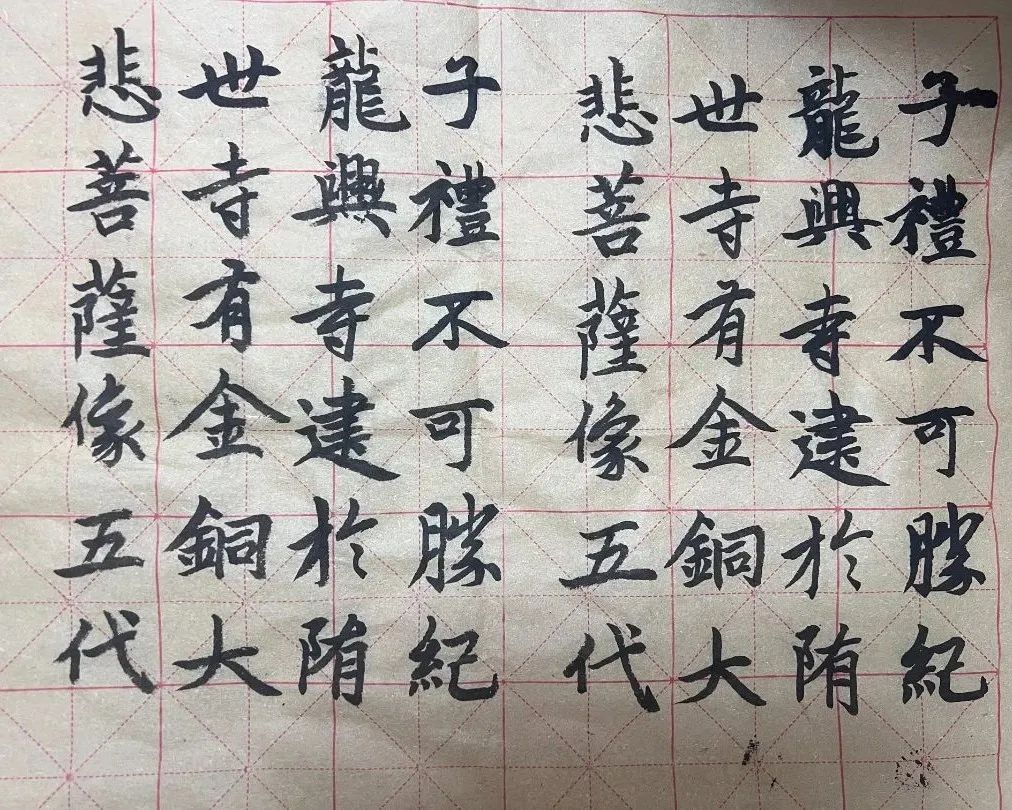 子禮不可勝紀
龍興寺建於陏
世寺有金銅大
悲菩薩像五代
子禮不可勝紀
龍興寺建於陏
世寺有金銅大
悲菩薩像五代